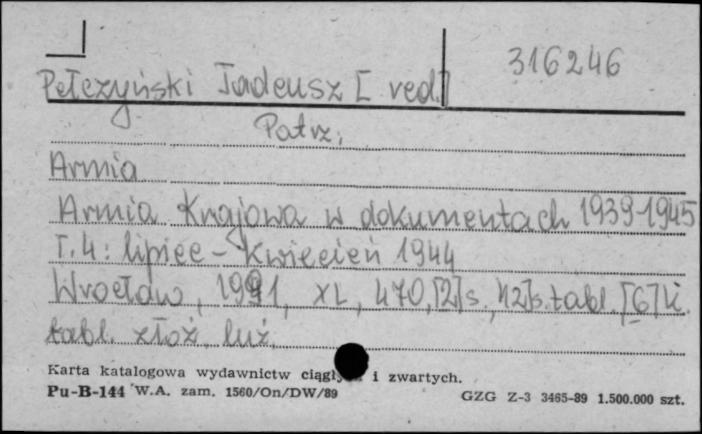 316246
Pełczyński Tadeusz [red.]
Patrz:
Armia
Armia Krajowa w dokumentach 1939-1945
T.4: lipiec – kwiecień 1944
Wrocław, 1991, XL, 470, [2] s., 42] s. tabl. [6] k.
tabl. złoż. luź.
Karta katalogowa wydawnictw ciągłych i zwartych.
Pu-B-144 W.A. zam. 1560/On/DW/89 GZG Z-3 3465-89 1.500.000 szt.